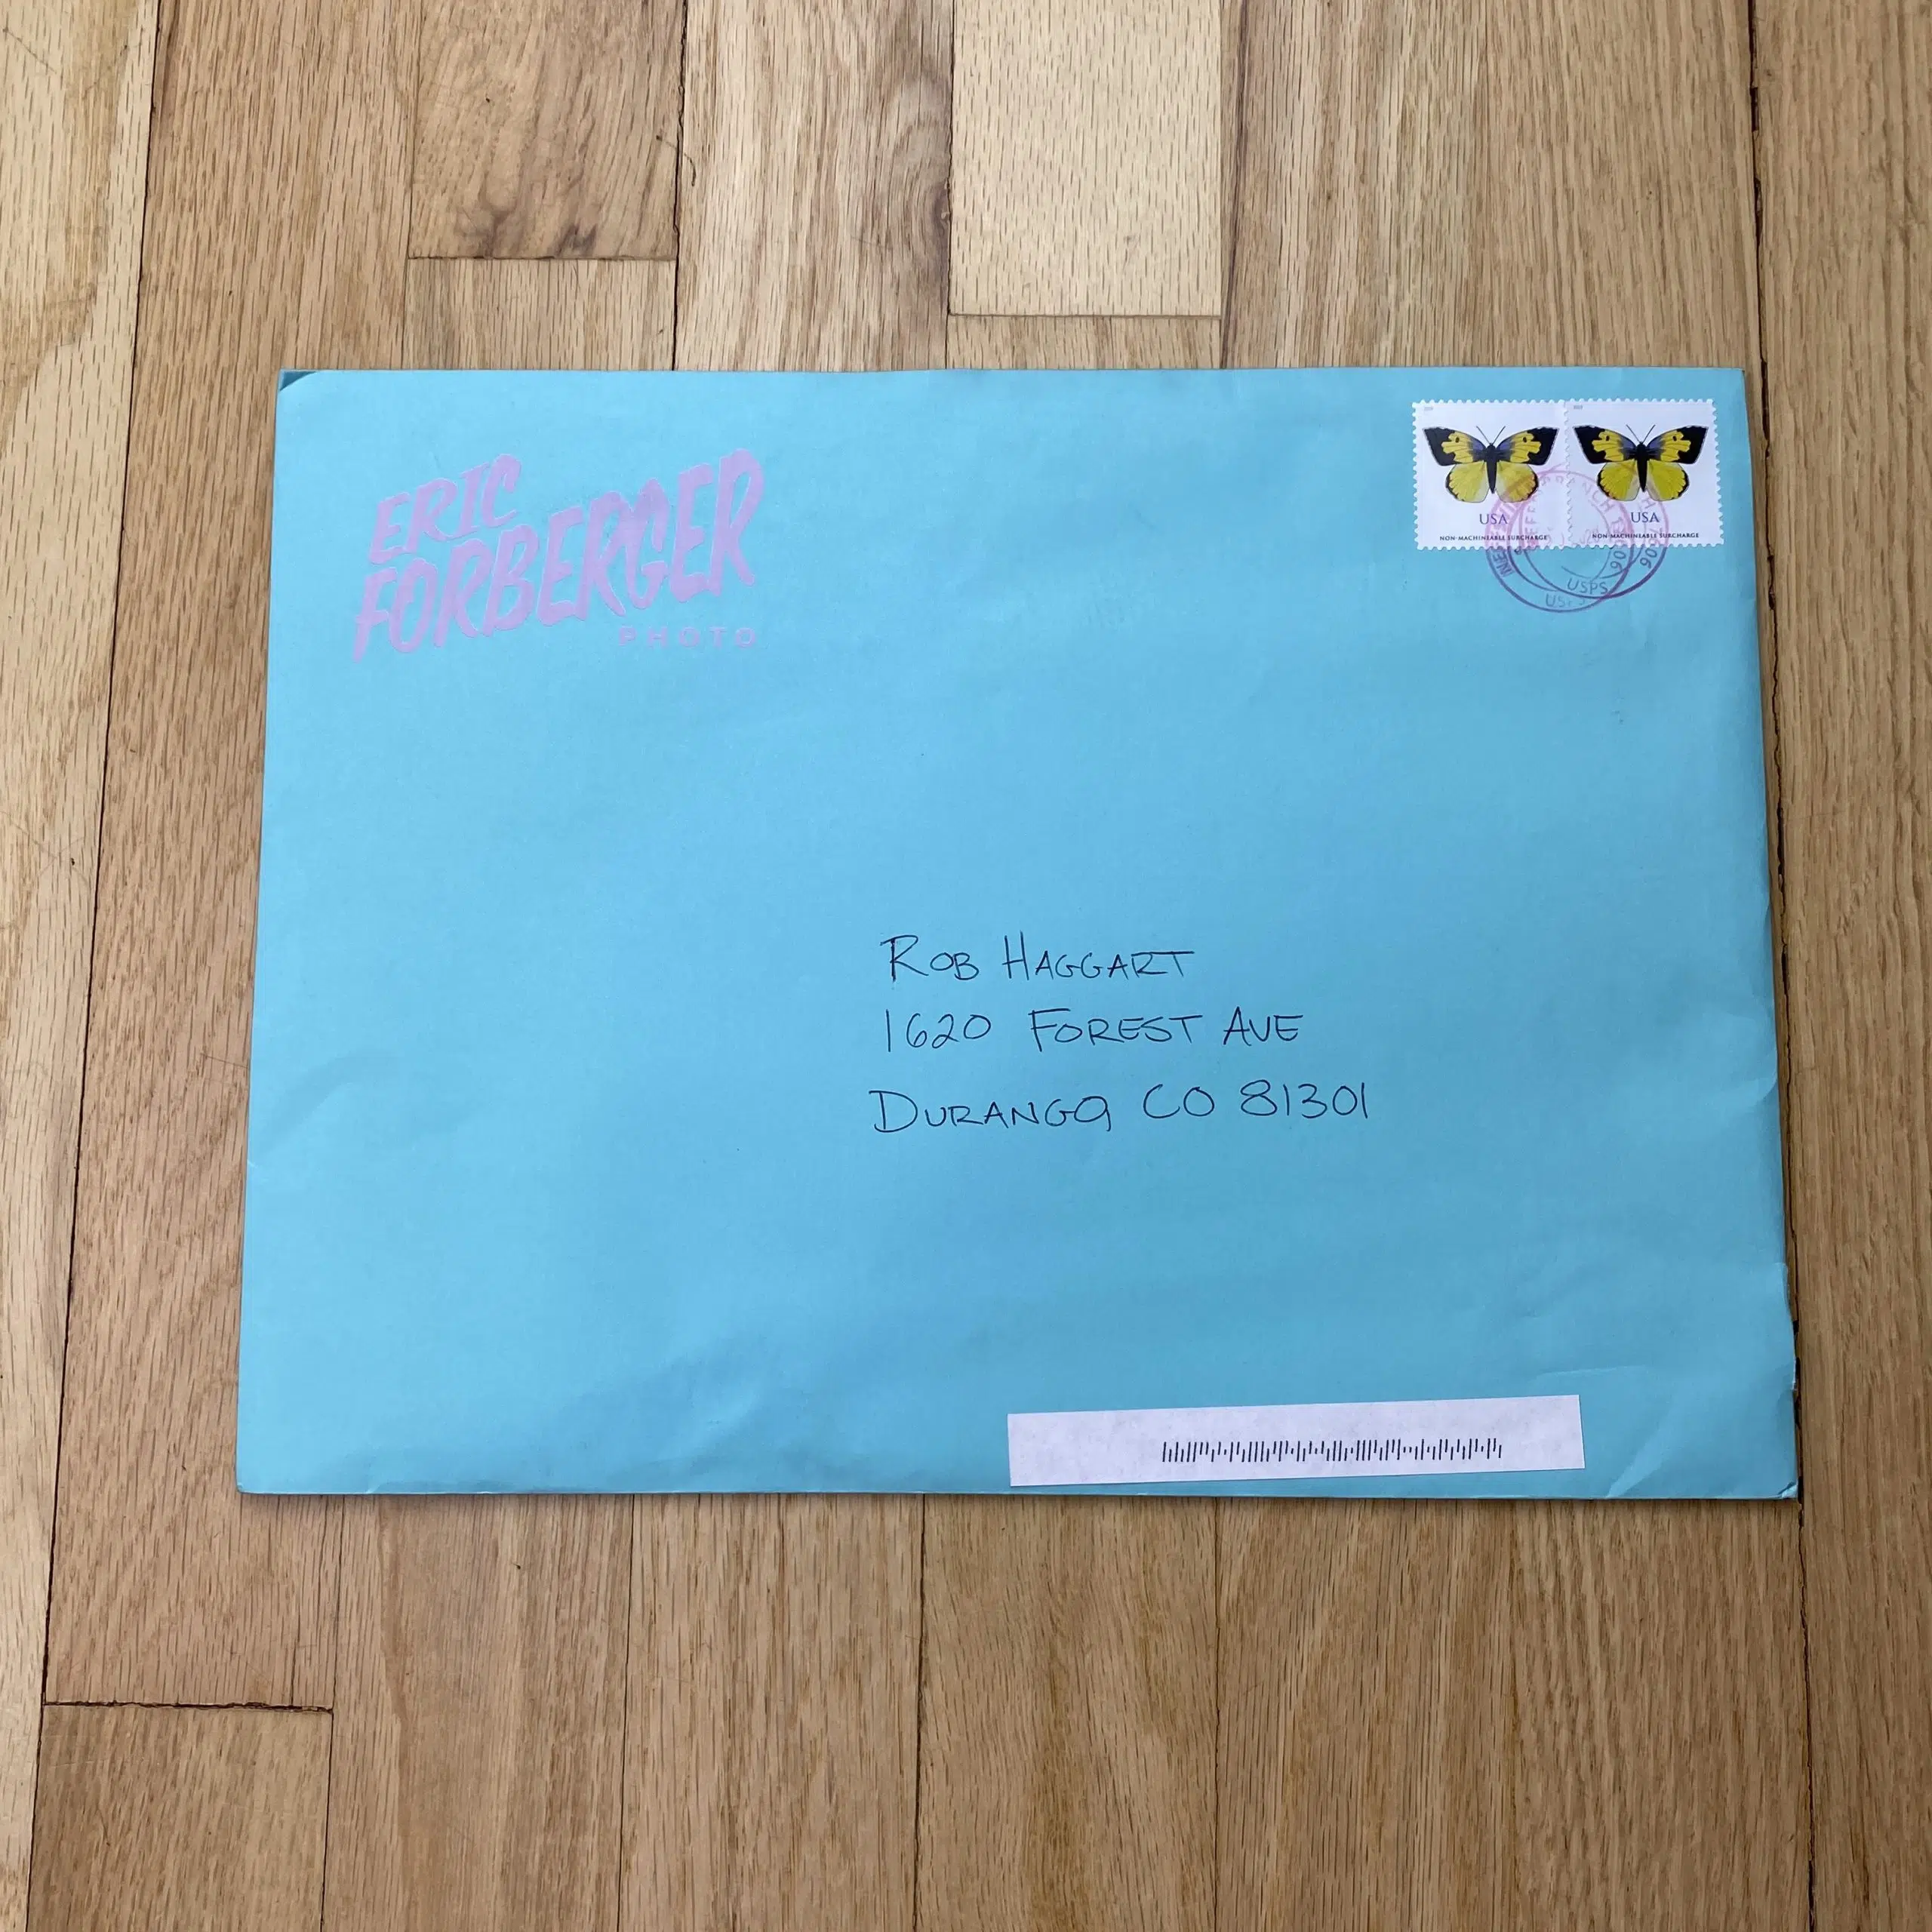 ERIC
FORBERGER
PHOTO
USA
NON-MACHINEABLE SURCHARGE
USA
NON-MACHINEABLE SURCHARGE
USPS
ROB HAGGART
1620 FOREST AVE
DURANGO, CO 81301